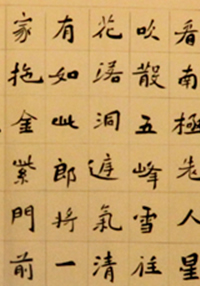 看南極老人星
吹散五峰雪往
花落洞庭氣清
有如此郎將一
家拖金紫門前